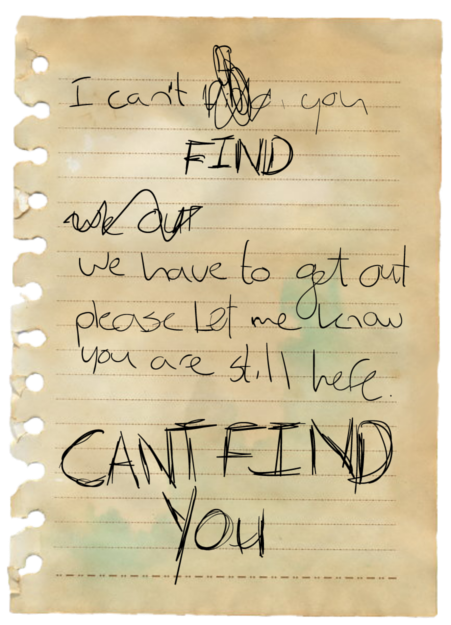 I can't you
FIND
out
We have to get out
please let me know
you are still here.
CANT FIND
YOU